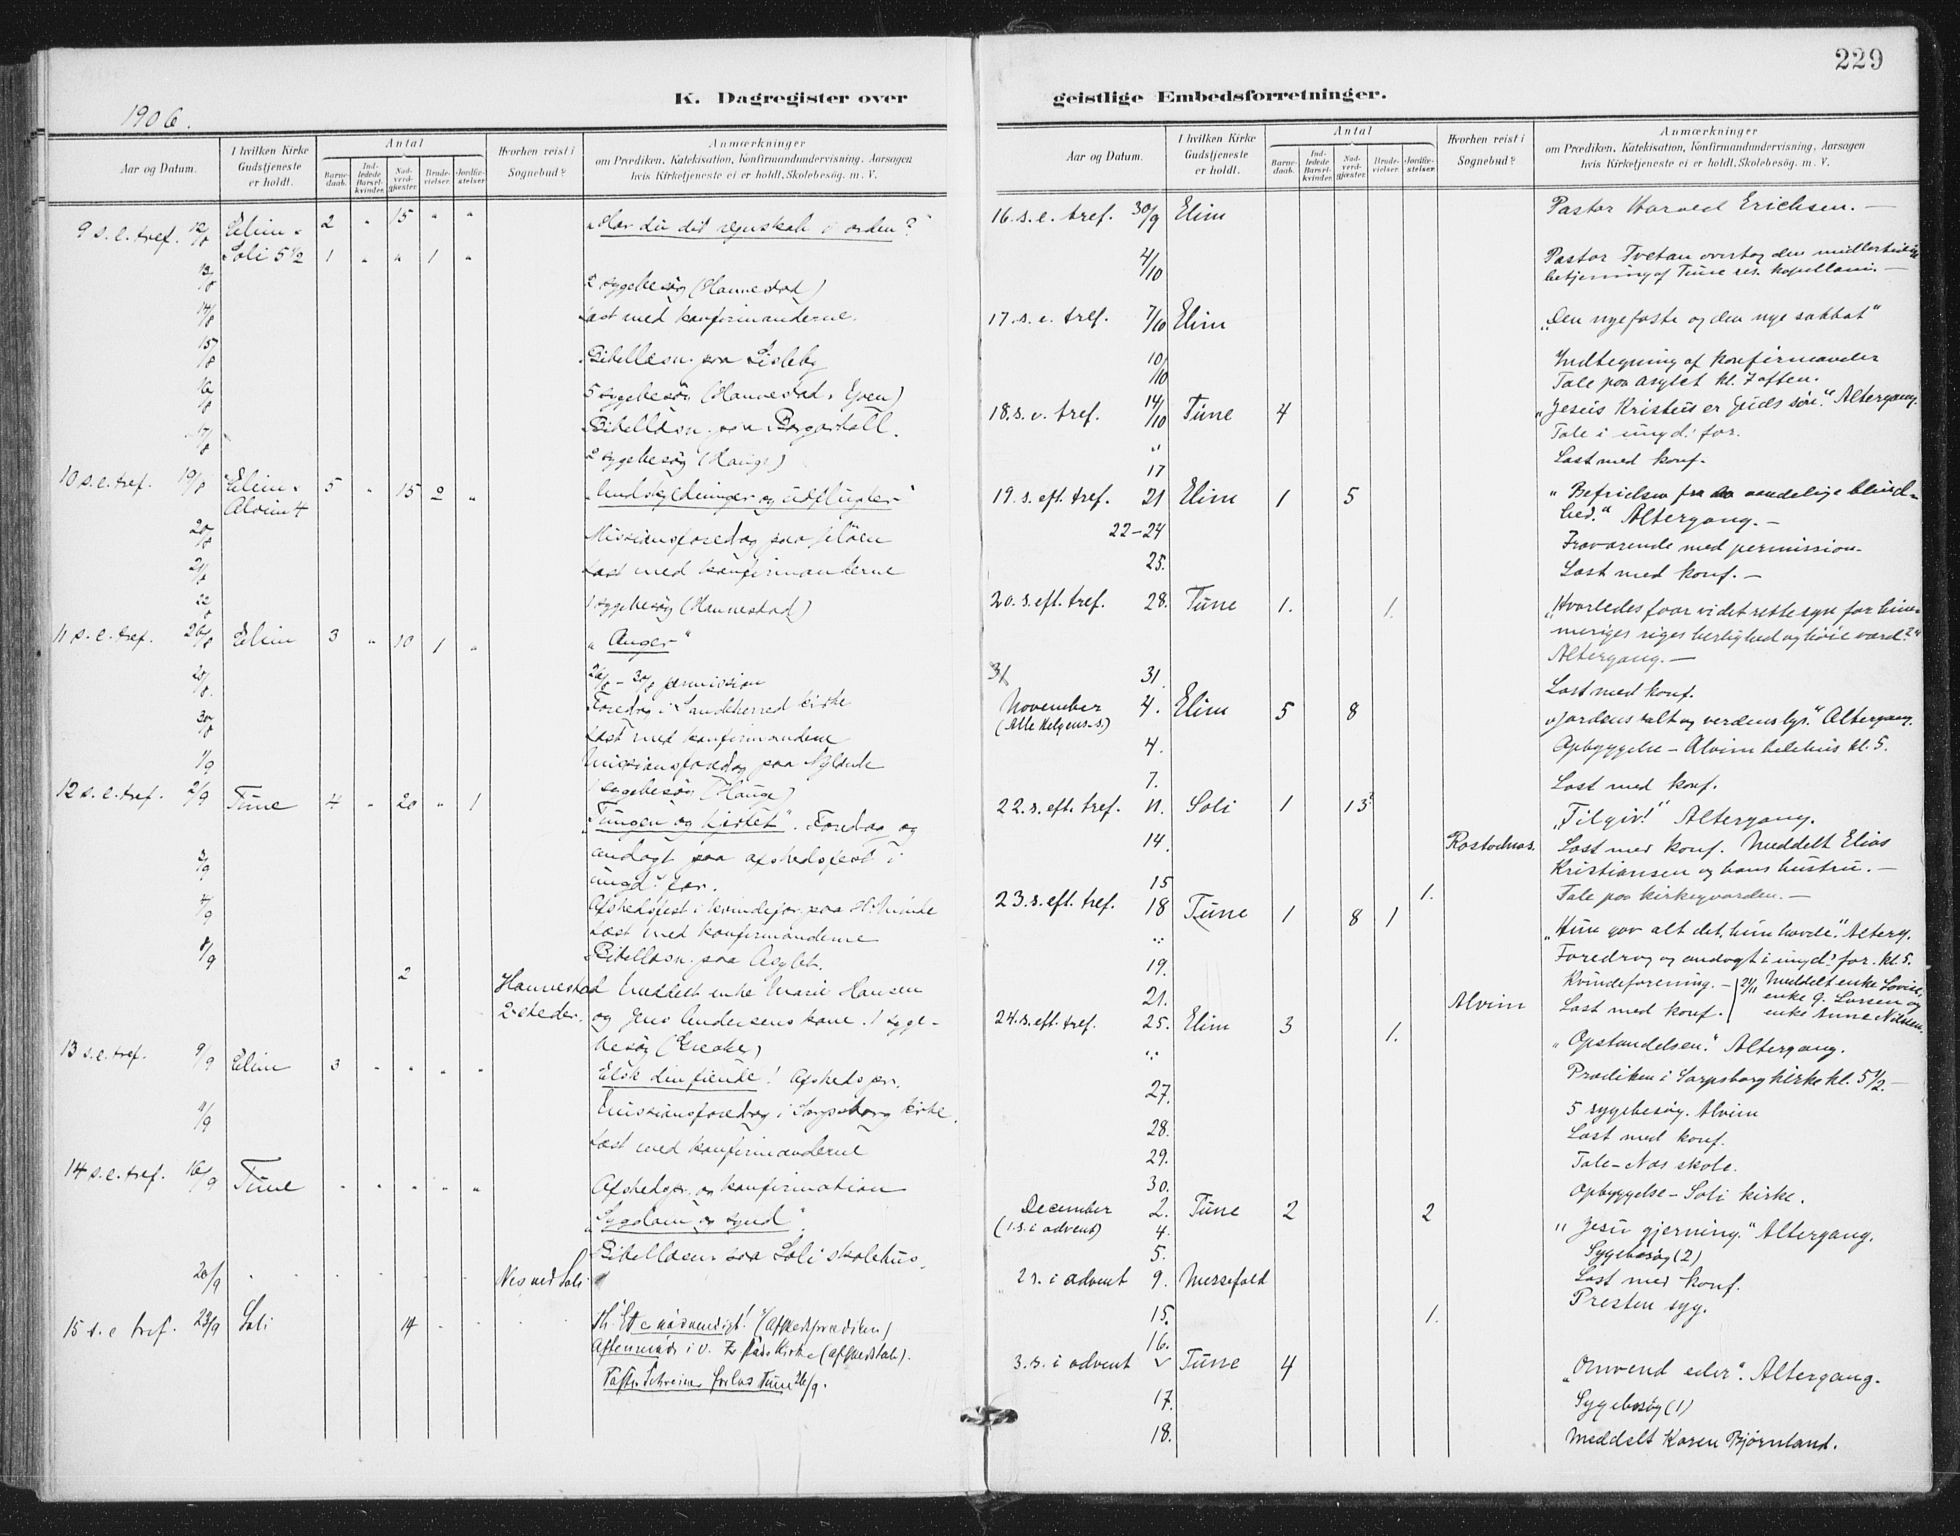 229
1906.
K. Dagregister over geistlige Embedsforretninger.
Aar og Datum.
I hvilken Kirke Gudstjeneste er holdt.
Antal
Barnedaab.
Indledede Barselkvinder.
Nadverdgjæster.
Brudevielser.
Jordfæstelser.
Hvorhen reist i Sognebud?
Anmærkninger
om Prædiken, Katekisation, Konfirmandundervisning, Aarsagen
hvis Kirketjeneste ei er holdt, Skolebesøg. m. V.
9 s. e. tref. 12/8 Elim. 2 " 15 " " "Har du dit regnskab i orden?"
Soli 5½ 1 " " 1 "
13/8 2 sygebesøg (Hannestad)
14/8 Læst med konfirmanderne.
15/8 Bibellæsn. paa Lisleby
16/8 5 sygebesøg (Hannestad, Yven)
17/8 Bibellæsn. paa Borgarhall.
2 sygebesøg (Hauge)
10 s. e. tref. 19/8 Elim. 5 " 15 2 " "Undskyldninger og udflugter"
Alvim 4
20/8 Missionsforedrag paa Jeløen
21/8 Læst med konfirmanderne
22/8 1 sygebesøg (Hannestad)
11 s. e. tref. 26/8 Elim 3 " 10 1 " "Anger"
26/8 - 30/8 permission
Foredrag i Sandeherred kirke
30/8 Læst med konfirmandene
1/9 Missionsforedrag paa
1 sygebesøg (Hauge)
12 s. e. tref. 2/9 Tune 4 " 20 " 1
"Tungen og hjertet". Foredrag og
andagt paa afskedsfest i
3/9 ungd. for.
4/9 Afskedsfest i kvindefor. paa
Læst med konfirmanderne
8/9 Bibellæsn. paa Asylet.
2 Hannestad Meddelt enke Marie Hansen
2 steder. og Jens Andersens kone. 1 syge-
besøg (Greaker)
13 s. e. tref. 9/9 Elim 3 " " " " Elsk din fiende! Afskedspr.
Missionsforedrag i Sarpsborg kirke.
11/9 Læst med konfirmanderne
14 s. e. tref. 16/9 Tune " " " " " Afskedspr. og konfirmation
"Sygdom og synd".
Bibellæsn. paa Soli skolehus.
20/9 Nes ved Soli
15 s. e. tref. 23/9 Soli 14 Th. "Et er nødvendigt!" (Afskedsprædiken)
Aftenmøde i V. Fr.stads Kirke (afskedstale).
Pastor Schreiner forlod Tune 26/9.
16. s. e. tref. 30/9 Elim Pastor Harald Erichsen. —
4/10 Pastor Tvetan overtog den midlertidige
betjening af Tune res. kapellani. —
17. s. e. tref. 7/10 Elim "Den nye faste og den nye sabbat"
10/10 Indtegning af konfirmander
Tale paa asylet kl. 7 aften.
18. s. e. tref. 14/10 Tune 4 "Jesus Kristus er Guds søn." Altergang.
" Tale i ungd. for.
17 Læst med konf.
19. s. eft. tref. 21 Elim 1 5 "Befrielsen fra aandelige blind-
hed." Altergang. —
22—24 Fraværende med permission.
25. Læst med konf. —
20. s. eft. tref. 28. Tune 1. 1. "Hvorledes faar vi det rette syn for him-
meriges riges herlighed og høie værd?"
Altergang. —
31 31. Læst med konf.
November 4. Elim 5 8 "Jordens salt og verdens lys." Altergang.
(Alle Helgens-s.)
4. Opbyggelse — Alvim bedehus kl. 5.
7. Læst med konf.
22. s. eft. tref. 11. Soli 1 13? "Tilgiv!" Altergang.
14. Læst med konf. Meddelt Elias
Kristiansen og hans hustru. —
15 1. Tale paa kirkegaarden. —
23. s. eft. tref. 18 Tune 1 8 1 "Hun gav alt det, hun havde." Alterg.
" Foredrag og andagt i ungd. for. kl. 5.
19. Kvindeforening. —
21. Alvim Læst med konf. (21/11 Meddelt enke Lovise, enke G. Larsen og enke Anne Nilsen.
24. s. eft. tref. 25. Elim 3 1. "Opstandelsen." Altergang.
" Prædiken i Sarpsborg kirke kl. 5½. —
27. 5 sygebesøg. Alvim
28. Læst med konf.
29. Tale — Næs skole.
30. Opbyggelse — Soli kirke.
December 2. Tune 2 2 "Jesu gjerning." Altergang.
(1. s. i advent) 4. Sygebesøg (2)
5. Læst med konf.
2 s. i advent 9. Messefald Presten syg.
15. 1.
16.
3. s. i advent Tune 4 "Omvend eder". Altergang.
17. Sygebesøg (1)
18. Meddelt Karen Bjørnland.